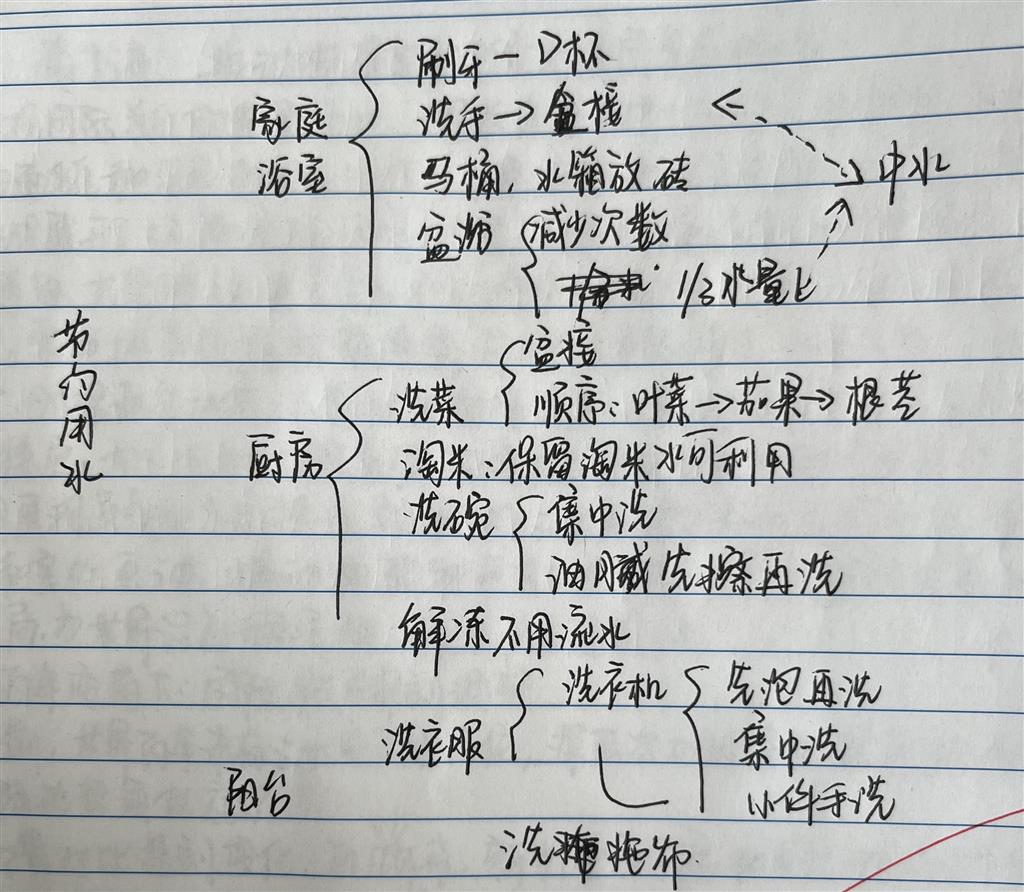 节约用水
家庭浴室
刷牙 — 口杯
洗手 → 盆接
马桶，水箱放砖
盆浴
减少次数
1/3水量上
中水
厨房
洗菜
盆接
顺序：叶菜 → 茄果 → 根茎
淘米：保留淘米水可利用
洗碗
集中洗
油腻先擦再洗
解冻不用流水
阳台
洗衣服
洗衣机
先泡再洗
集中洗
小件手洗
洗拖布.